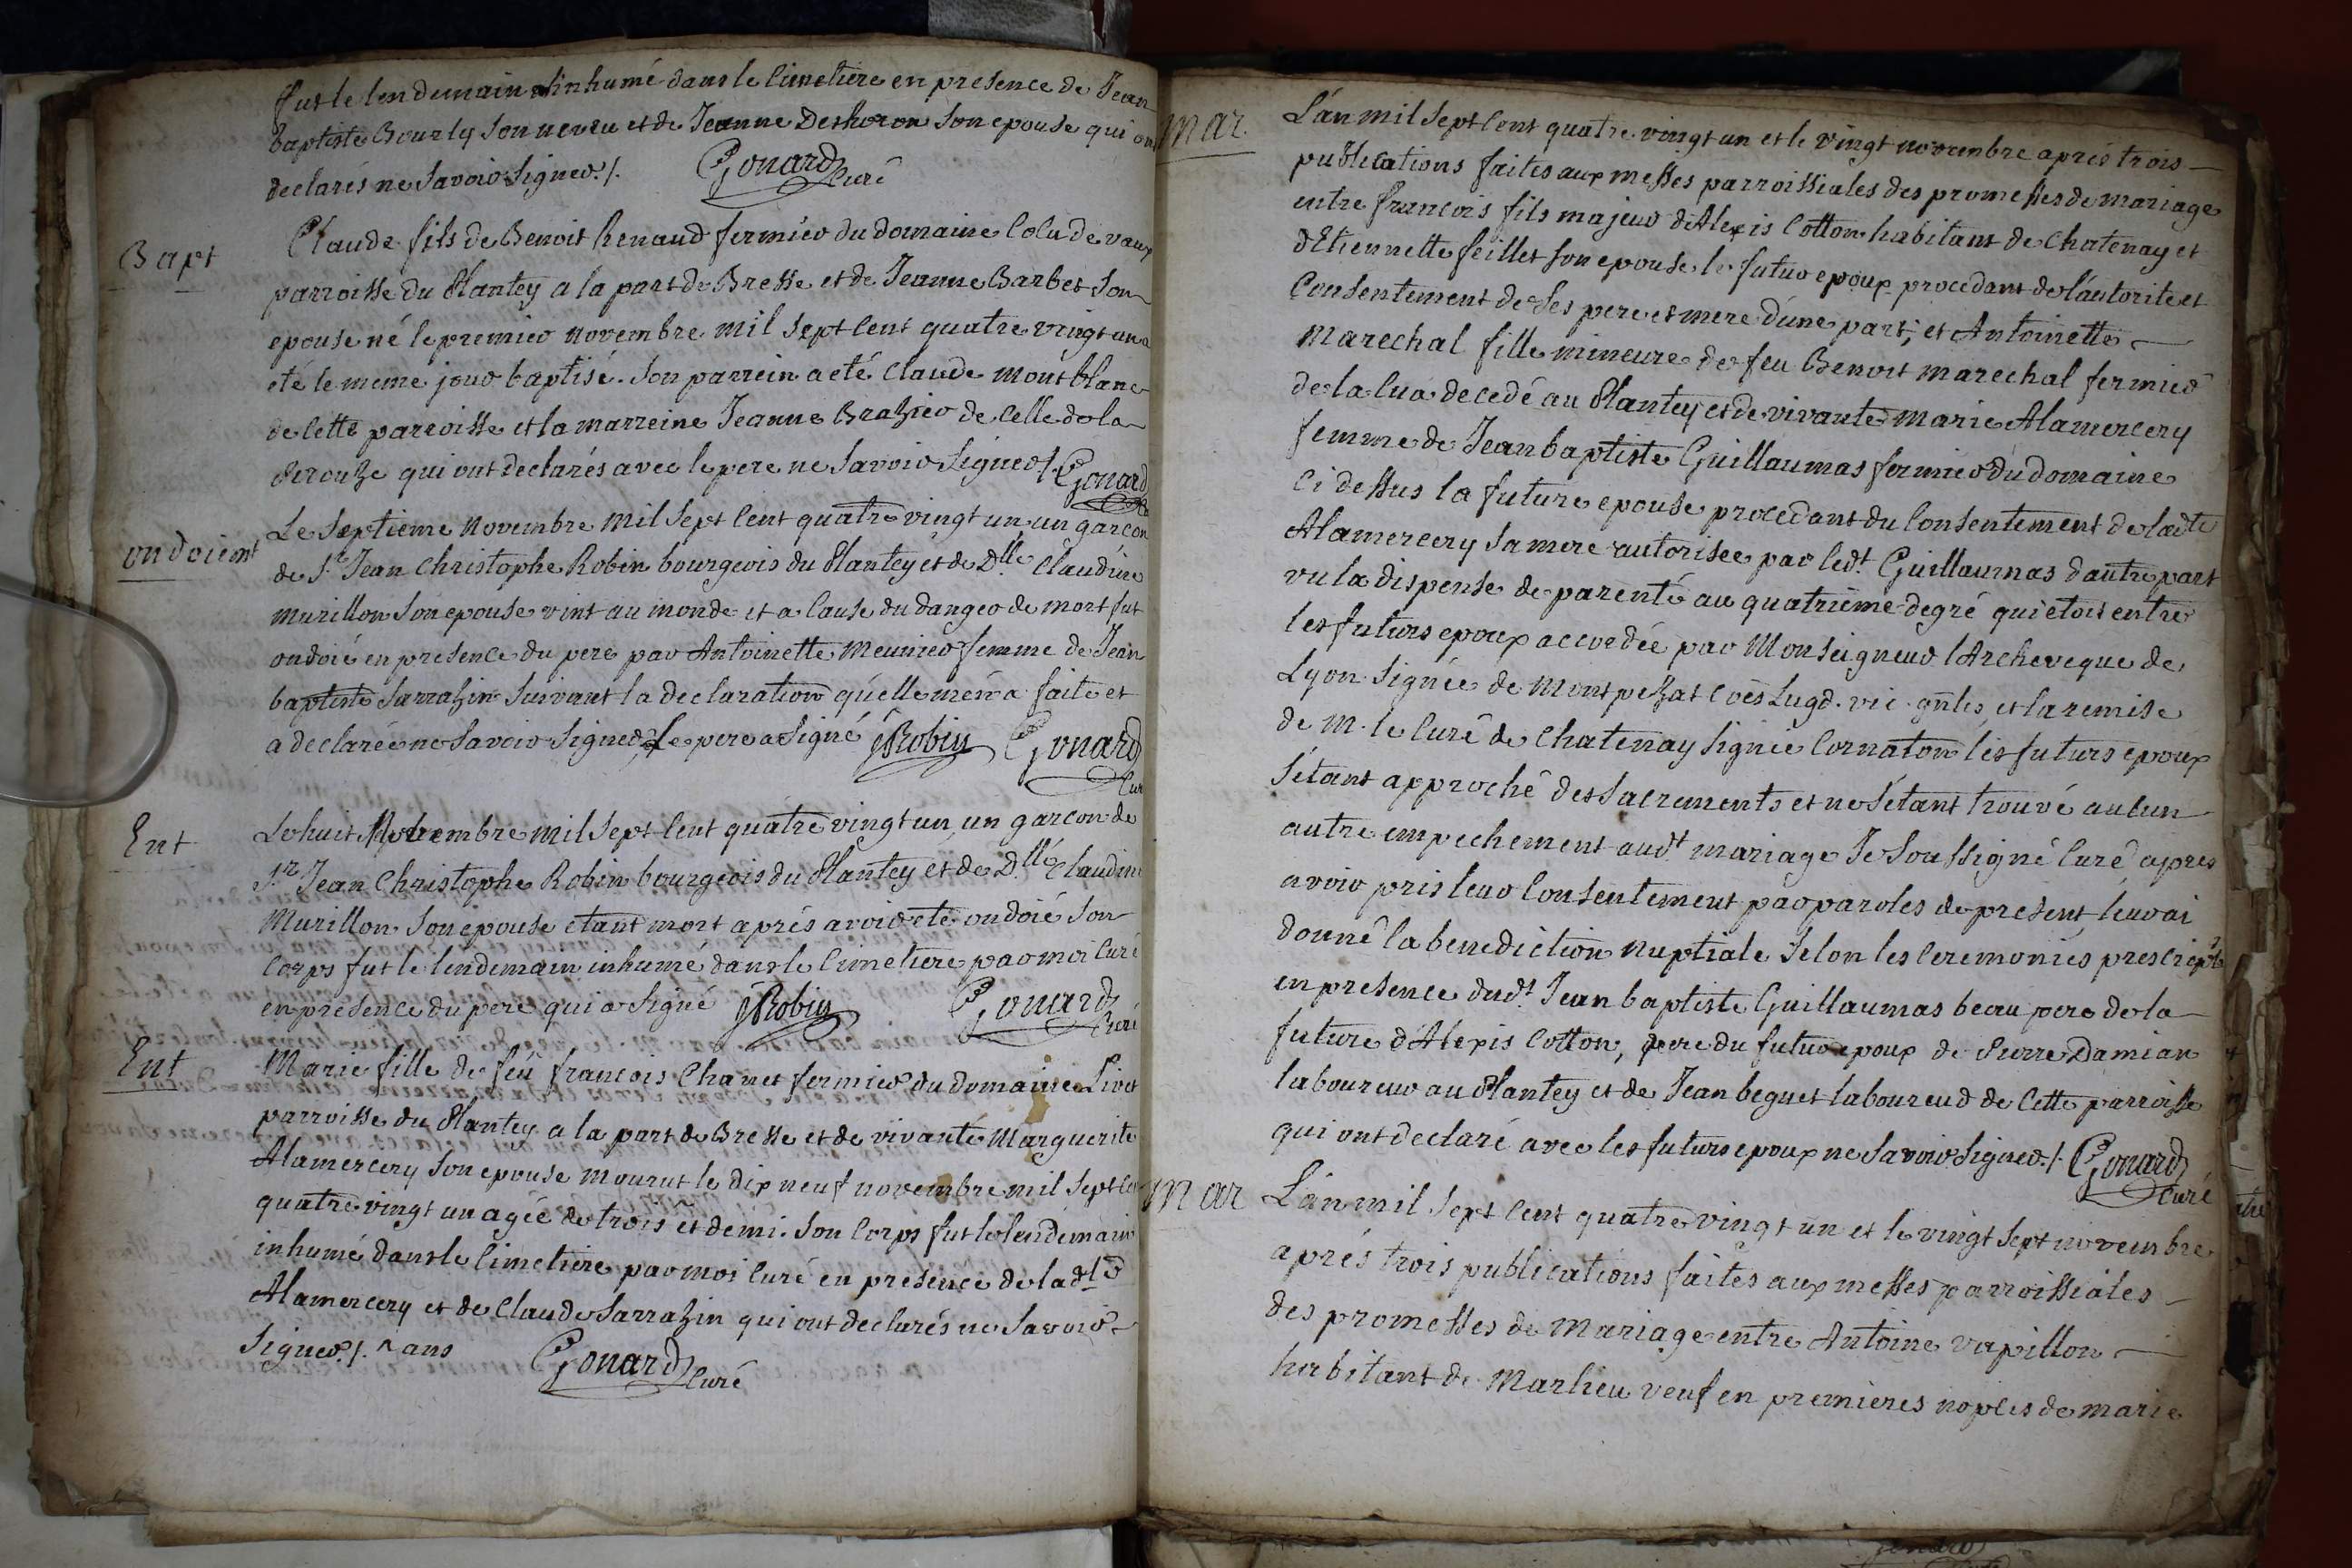 fut le lendemain inhumé dans le Cimetiere en presence de Jean
baptiste Bourly son neveu et de Jeanne Deshoron son epouse qui on
declarés ne savoir signer ./. Gonard Curé
Bapt
Claude fils de Benoit Renaud fermier du domaine Colu de vaux
parroisse du Plantey a la part de Bresse et de Jeanne Barbet son
epouse né le premier novembre mil sept cent quatre vingt un a
eté le meme jour baptisé. Son parrein a eté Claude Montblanc
de cette parroisse et la marreine Jeanne Brazier de celle de la
Perouze qui ont declarés avec le pere ne savoir signer ./. Gonard
ondoiemt
Le septieme novembre mil sept cent quatre vingt un un garcon
de Sr Jean Christophe Robin bourgeois du Plantey et de Dlle Claudine
murillon son epouse vint au monde et a cause du danger de mort fut
ondoié en presence du pere par Antoinette Meunier femme de Jean
baptiste Sarrazin suivant la declaration qu'elle m'en a faite et
a declarée ne savoir signer, le pere a signé JRobin Gonard
Cur
Ent
Le huit Novembre mil sept cent quatre vingt un un garcon de
Sr Jean Christophe Robin bourgeois du Plantey et de Dlle Claudine
Murillon son epouse etant mort aprés avoir eté ondoié son
corps fut le lendemain inhumé dans le Cimetiere par moi Curé
en presence du pere qui a signé JRobin Gonard Curé
Ent
Marie fille de feû francois Chanet fermier du domaine Livet
parroisse du Plantey a la part de Bresse et de vivante Marguerite
Alamercery son epouse mourut le dix neuf novembre mil sept cen
quatre vingt un agée de trois ^ et demi. Son corps fut le lendemain
inhumé dans le Cimetiere par moi Curé en presence de la dte
Alamercery et de Claude Sarrazin qui ont declarés ne savoir
signer ./. ^ ans Gonard Curé
Mar
L'an mil sept cent quatre vingt un et le vingt novembre aprés trois
publications faites aux messes parroissiales des promesses de mariage
entre francois fils majeur d'Alexis Cotton habitant de Chatenay et
d'Etiennette feillet son epouse, le futur epoux procedant de l'autorité et
Consentement de ses pere et mere d'une part, et Antoinette
Marechal fille mineure de feu Benoit marechal fermier
de la Lua decedé au Plantey et de vivante Marie Alamercery
femme de Jean baptiste Guillaumas fermier du domaine
Ci dessus la future epouse procedant du Consentement de ladte
Alamercery sa mere autorisée par ledt Guillaumas d'autre part
vu la dispense de parenté au quatriéme degré qui etoit entre
les futurs epoux accordée par Monseigneur l'Archeveque de
Lyon signée de Montpezat Coes Lugd. vic. gnlis, et la remise
de M. le Curé de Chatenay signée Cornaton les futurs epoux
s'étant approché des sacrements et ne s'étant trouvé aucun
autre empechement audt mariage Je soussigné Curé apres
avoir pris leur Consentement par paroles de present leur ai
donné la benediction nuptiale selon les Ceremonies prescriptes
en presence dudt Jean baptiste Guillaumas beau pere de la
future d'Alexis Cotton, pere du futur epoux de Pierre Damian
laboureur au Plantey et de Jean beguet laboureur de Cette parroisse
qui ont declaré avec les futurs epoux ne savoir signer ./. Gonard
Curé
Mar
L'an mil sept cent quatre vingt un et le vingt sept novembre
aprés trois publications faites aux messes parroissiales
des promesses de mariage entre Antoine Vapillon
habitant de Marlieu veuf en premieres nopces de marie